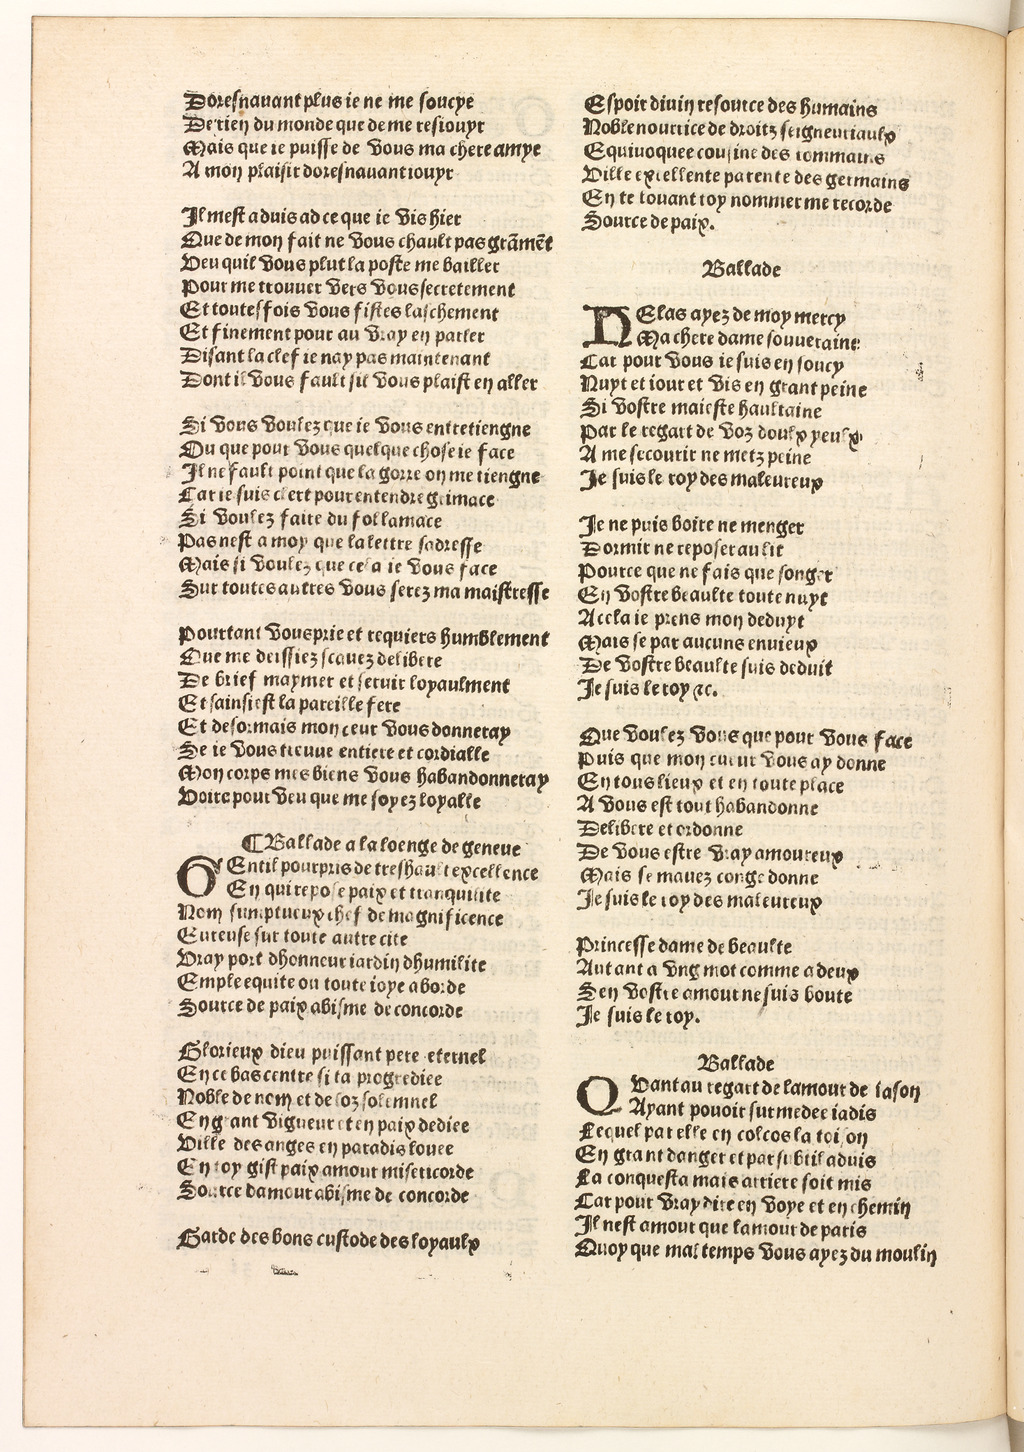 Doresnauant plus ie ne me soucye
De rien du monde que de me resiouyr
Mais que ie puisse de vous ma chere amye
A mon plaisir doresnauant iouyr
Il mest aduis ad ce que ie vis hier
Que de mon fait ne vous chault pas grāmēt
Veu quil vous plut la poste me bailler
Pour me trouuer vers vous secretement
Et toutesfois vous fistes laschement
Et finement pour au vray en parler
Disant la clef ie nay pas maintenant
Dont il vous fault sil vous plaist en aller
Si vous voulez que ie vous entretiengne
Ou que pour vous quelque chose ie face
Il ne fault point que la gorre on me tiengne
Car ie suis clert pour entendre grimace
Si voulez faire du fol lamace
Pas nest a moy que la lettre sadresse
Mais si voulez que cela ie vous face
Sur toutes autres vous serez ma maistresse
Pourtant vous prie et requiers humblement
Que me deissiez scauez delibere
De brief maymer et seruir loyaulment
Et sainsi est la pareille fere
Et desormais mon ceur vous donneray
Se ie vous treuue entiere et cordialle
Mon corps mes biens vous habandonneray
Voire pour veu que me soyez loyalle
¶ Ballade a la loenge de geneue
GEntil pourpris de treshault excellence
En qui repose paix et tranquilite
Nom sumptueux chef de magnificence
Eureuse sur toute autre cite
Vray port dhonneur iardin dhumilite
Emple equite ou toute ioye aborde
Source de paix abisme de concorde
Glorieux dieu puissant pere eternel
En ce bas centre si ta progrediee
Noble de nom et de loz solemnel
En grant vigueur et en paix dediee
Ville des anges en paradis louee
En toy gist paix amour misericorde
Source damour abisme de concorde
Garde des bons custode des loyaulx
Espoir diuin resource des humains
Noble nourrice de droitz seigneuriaulx
Equiuoquee cousine des rommains
Ville excellente parente des germains
En te louant toy nommer me recorde
Source de paix.
Ballade
HElas ayez de moy mercy
Ma chere dame souueraine
Car pour vous ie suis en soucy
Nuyt et iour et vis en grant peine
Si vostre maieste haultaine
Par le regart de voz doulx yeulx
A me secourir ne metz peine
Je suis le roy des maleureux
Je ne puis boire ne menger
Dormir ne reposer au lit
Pource que ne fais que songer
En vostre beaulte toute nuyt
A cela ie prens mon deduyt
Mais se par aucuns enuieux
De vostre beaulte suis deduit
Je suis le roy ⁊c.
Que voulez vous que pour vous face
Puis que mon cueur vous ay donne
En tous lieux et en toute place
A vous est tout habandonne
Delibere et ordonne
De vous estre vray amoureux
Mais se mauez conge donne
Je suis le roy des maleureux
Princesse dame de beaulte
Autant a vng mot comme a deux
Sen vostre amour ne suis boute
Je suis le roy.
Ballade
QVant au regart de lamour de iason
Ayant pouoir sur medee iadis
Lequel par elle en colcos la toison
En grant danger et par subtil aduis
La conquesta mais arriere soit mis
Car pour vray dire en voye et en chemin
Il nest amour que lamour de paris
Quoy que mal temps vous ayez du moulin